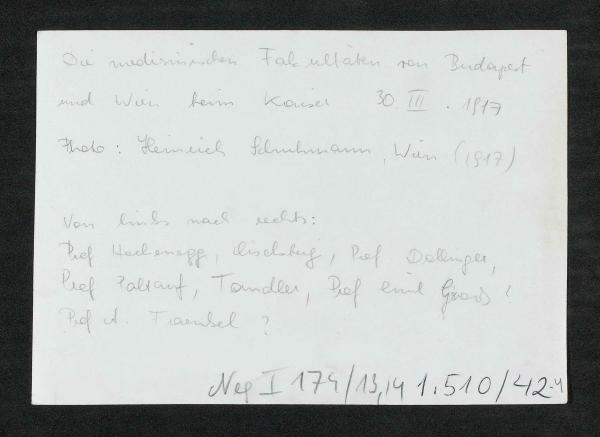 Die medizinischen Fakultäten von Budapest
und Wien beim Kaiser 30 III. 1917
Photo: Heinrich Schuhmann, Wien (1917)
Von links nach rechts:
Prof Hochenegg, Eiselsberg, Prof Dollinger,
Prof Paltauf, Tandler, Prof Emil Grósz!
Prof A. Fraenkel?
Neg I 174/13,14 1.510/42-4